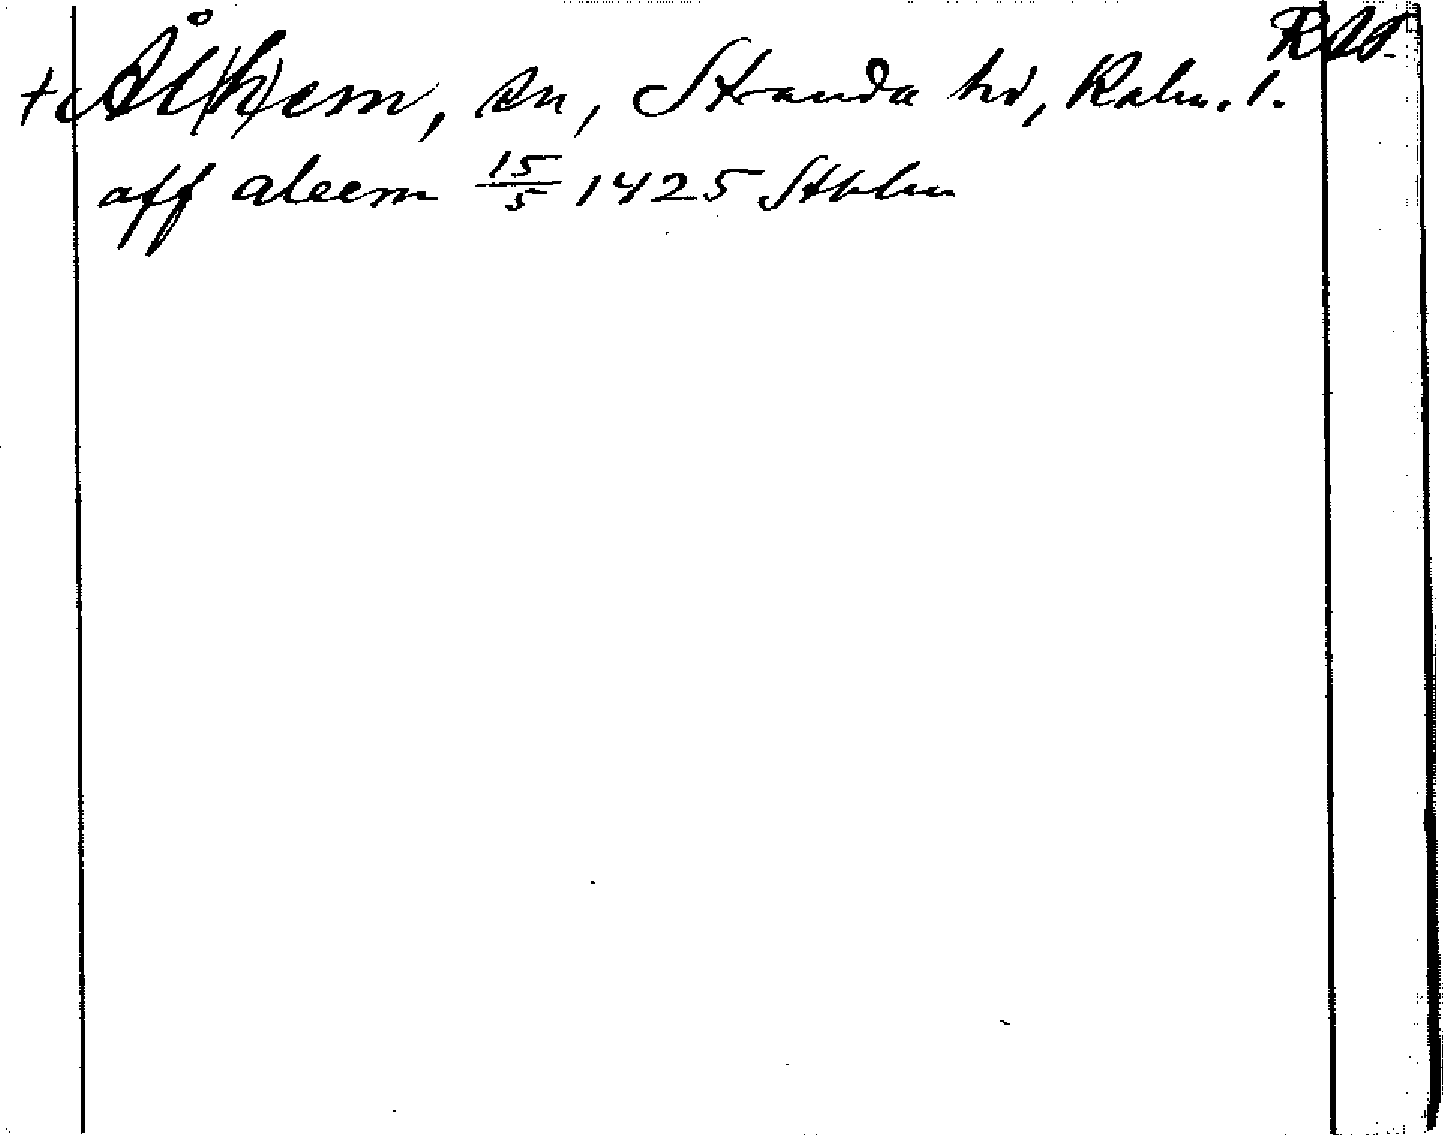 RAP
+ Ål(h)em, sn, Stranda hd, Kalm. l.
aff aleem 15/5 1425 Sthlm